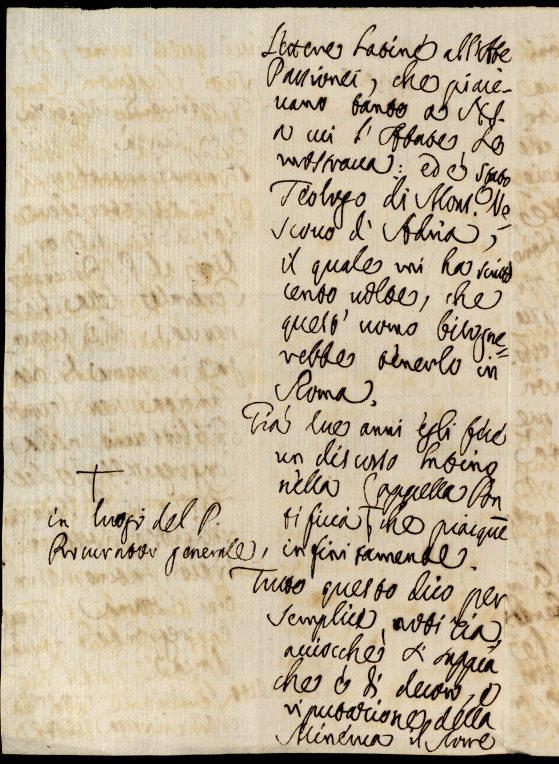 Lettere Latine all'Abe
Passionei, che piaie-
vano tanto a
a cui l'Abbate Le
mostrava: ed è stato
Teologo di Mons.r Ve
scovo d'Adria,
il quale mi ha scritto
cento volte, che
quest' uomo bisogne
rebbe tenerlo in
Roma.
Già due anni egli fece
un discorso latino
nella Cappella Pon
tificia † che piacque
infinitamente.
Tutto questo dico per
semplice notizia,
acciocchè si sappia
che è di decoro, e
riputazione della
Minerva il
†
in luogo del P.
Procurator generale,